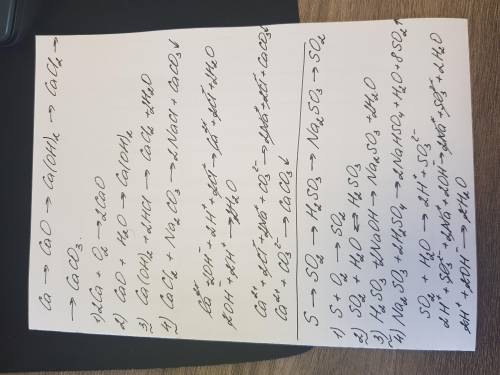 Ca → CaO → Ca(OH)₂ → CaCl₂ →
→ CaCO₃.
1) 2Ca + O₂ → 2CaO
2) CaO + H₂O → Ca(OH)₂
3) Ca(OH)₂ + 2HCl → CaCl₂ + 2H₂O
4) CaCl₂ + Na₂CO₃ → 2NaCl + CaCO₃↓
Ca²⁺ + 2OH⁻ + 2H⁺ + 2Cl⁻ → Ca²⁺ + 2Cl⁻ + 2H₂O
2OH⁻ + 2H⁺ → 2H₂O
Ca²⁺ + 2Cl⁻ + 2Na⁺ + CO₃²⁻ → 2Na⁺ + 2Cl⁻ + CaCO₃↓
Ca²⁺ + CO₃²⁻ → CaCO₃↓
S → SO₂ → H₂SO₃ → Na₂SO₃ → SO₂
1) S + O₂ → SO₂
2) SO₂ + H₂O ⇄ H₂SO₃
3) H₂SO₃ + 2NaOH → Na₂SO₃ + 2H₂O
4) Na₂SO₃ + 2H₂SO₄ → 2NaHSO₄ + H₂O + SO₂↑
SO₂ + H₂O → 2H⁺ + SO₃²⁻
2H⁺ + SO₃²⁻ + 2Na⁺ + 2OH⁻ → 2Na⁺ + SO₃²⁻ + 2H₂O
2H⁺ + 2OH⁻ → 2H₂O